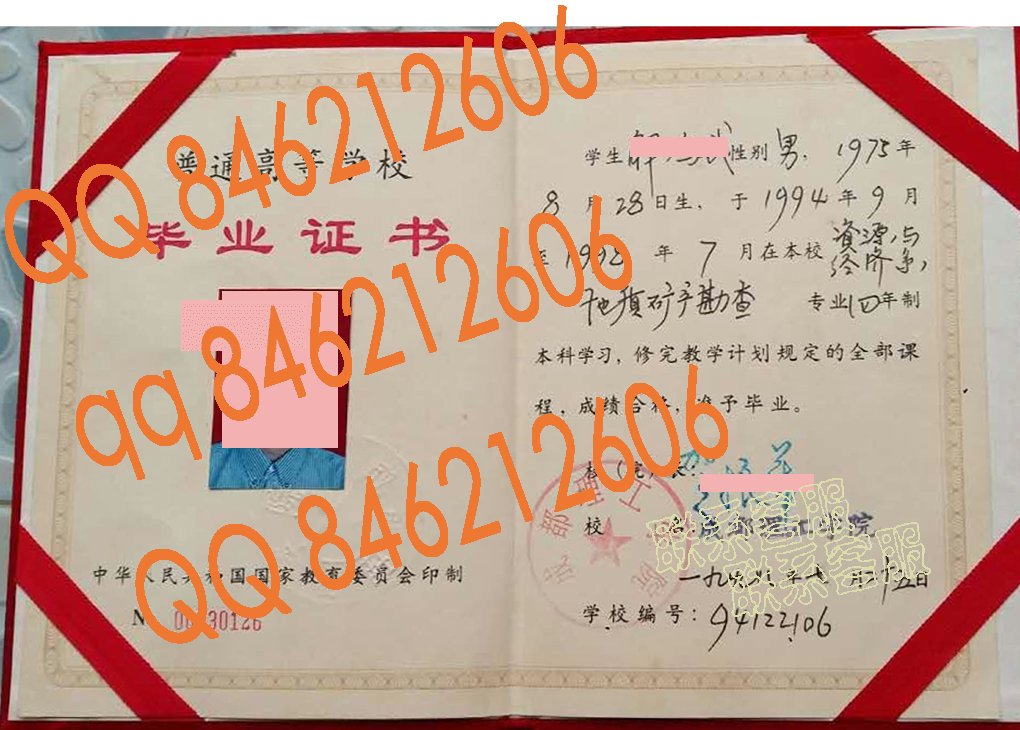 普通高等学校
毕业证书
中华人民共和国国家教育委员会印制
QQ 846212606
qq 846212606
QQ 846212606
学生 性别男，1975年
8月28日生，于1994年9月
至 年7月在本校资源与
经济系，
地质矿产勘查 专业四年制
本科学习，修完教学计划规定的全部课
程，成绩合格，准予毕业。
校 成都理工学院
学校编号：94122106
联系客服
联系客服